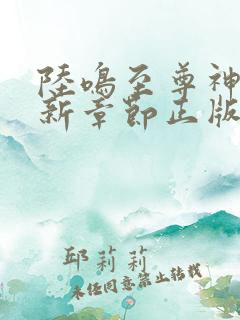 陸鳴至尊神
新章節正版
邱莉莉
未经同意禁止转载